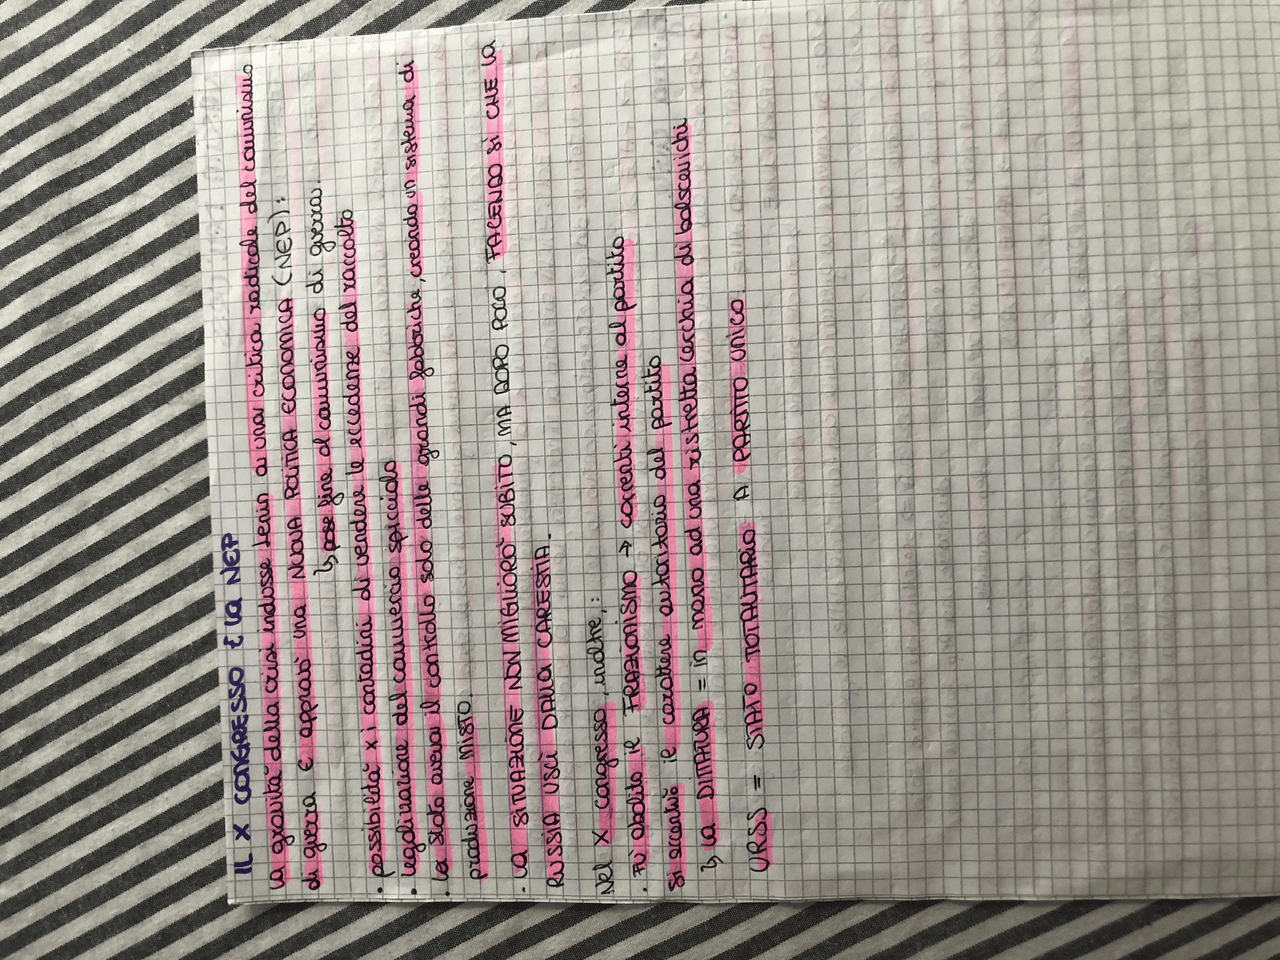 IL X CONGRESSO E la NEP
la gravità della crisi indusse Lenin a una critica radicale del comunismo
di guerra e approvò una NUOVA POLITICA ECONOMICA (NEP):
↳ pose fine al comunismo di guerra.
• possibilità x i contadini di vendere le eccedenze del raccolto
• legalizzazione del commercio spicciolo
• lo stato aveva il controllo solo delle grandi fabbriche, creando un sistema di
produzione MISTO.
• la SITUAZIONE NON MIGLIORÒ SUBITO, MA DOPO POCO, FACENDO SI CHE la
RUSSIA USCÌ DALLA CARESTIA.
Nel X congresso, inoltre,:
• Fu abolito il FRAZIONISMO → correnti interne al partito
Si accentuò il carattere autoritario del partito
↳ la DITTATURA = in mano ad una ristretta cerchia di bolscevichi
URSS = STATO TOTALITARIO A PARTITO UNICO.